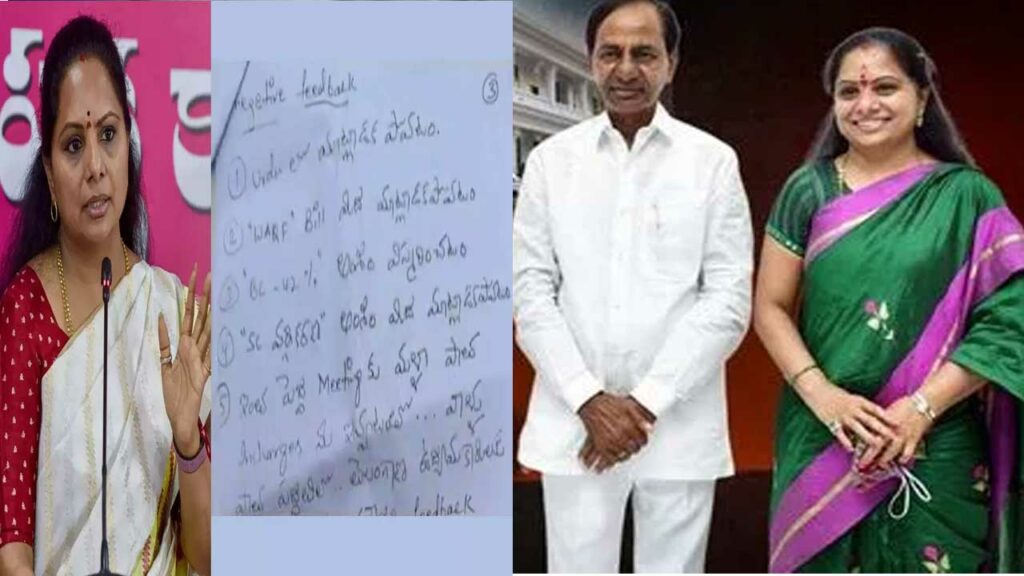 ③
Negative feedback
① Urdu లో మాట్లాడక పోవటం.
② "WAQF" Bill మీద మాట్లాడకపోవటం
③ "BC - 42 %" అంశం విస్మరించటం
④ "SC వర్గీకరణ" అంశం మీద మాట్లాడకపోవటం
⑤ పెద్ద Meeting కు మళ్ళీ పాత
Incharges కు
తెలంగాణ
feedback